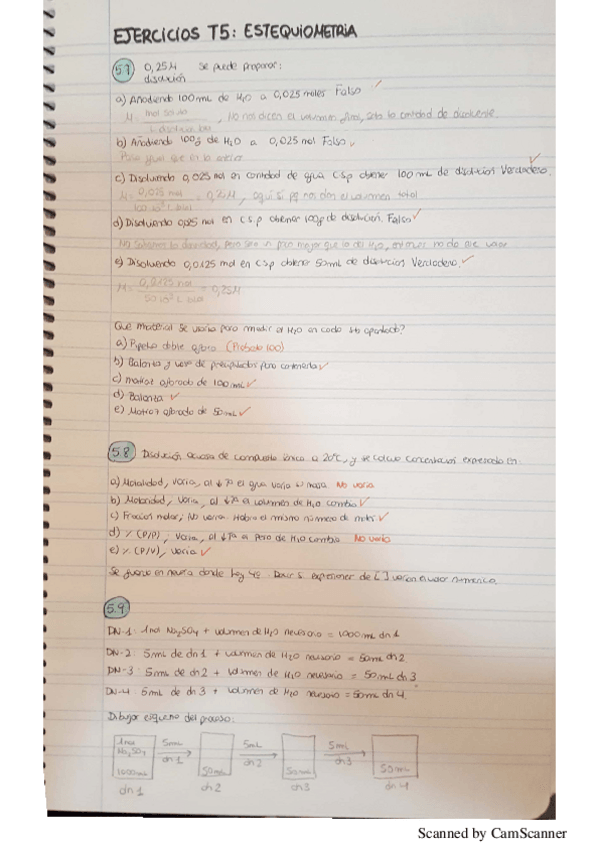 EJERCICIOS T5: ESTEQUIOMETRIA
5.7 0,25M se puede preparar:
disolución
a) Añadiendo 100mL de H2O a 0,025 moles Falso
M = mol soluto , No nos dicen el volumen final, solo la cantidad de disolvente
L disolución
b) Añadiendo 100g de H2O a 0,025 mol Falso
Pasa igual que en la anterior
c) Disolviendo 0,025 mol en cantidad de agua c.s.p obtener 100 mL de disolución Verdadero
M = 0,025 mol = 0,25M, aquí si pq nos dan el volumen total
100·10⁻³ L
d) Disolviendo 0,025 mol en c.s.p obtener 100g de disolución. Falso
No sabemos la densidad, pero será un poco mayor que la de H2O, entonces no da ese valor
e) Disolviendo 0,0125 mol en c.s.p obtener 50mL de disolución Verdadero
M = 0,0125 mol = 0,25M
50·10⁻³ L
Que material se usaría para medir el H2O en cada apartado?
a) Pipeta doble aforo (Probeta 100)
b) Balanza y vaso de precipitados para contenerla
c) matraz aforado de 100mL
d) Balanza
e) Matraz aforado de 50mL
5.8 Disolución acuosa de compuesto iónico a 20ºC, y se calcula concentración expresada en:
a) Molalidad, varia, al ↓Tª el agua varia su masa No varia
b) Molaridad, varia, al ↓Tª el volumen de H2O cambia
c) Fracción molar; No varia. Habrá el mismo número de moles
d) % (P/P), Varia, al ↓Tª el peso de H2O cambia No varia
e) % (P/V), varia
Se guarda en nevera donde hay 4º. Decir si expresiones de [ ] varían a valor numérico
5.9
DN-1: 1mol Na2SO4 + volumen de H2O necesario = 1000mL dn1
DN-2: 5mL de dn1 + volumen de H2O necesario = 50mL dn2
DN-3: 5mL de dn2 + volumen de H2O necesario = 50mL dn3
DN-4: 5mL de dn3 + volumen de H2O necesario = 50mL dn4
Dibujar esquema del proceso:
1mol Na2SO4 1000mL 5mL dn1 50mL 5mL dn2 50mL 5mL dn3 50mL
dn1 dn2 dn3 dn4
Scanned by CamScanner